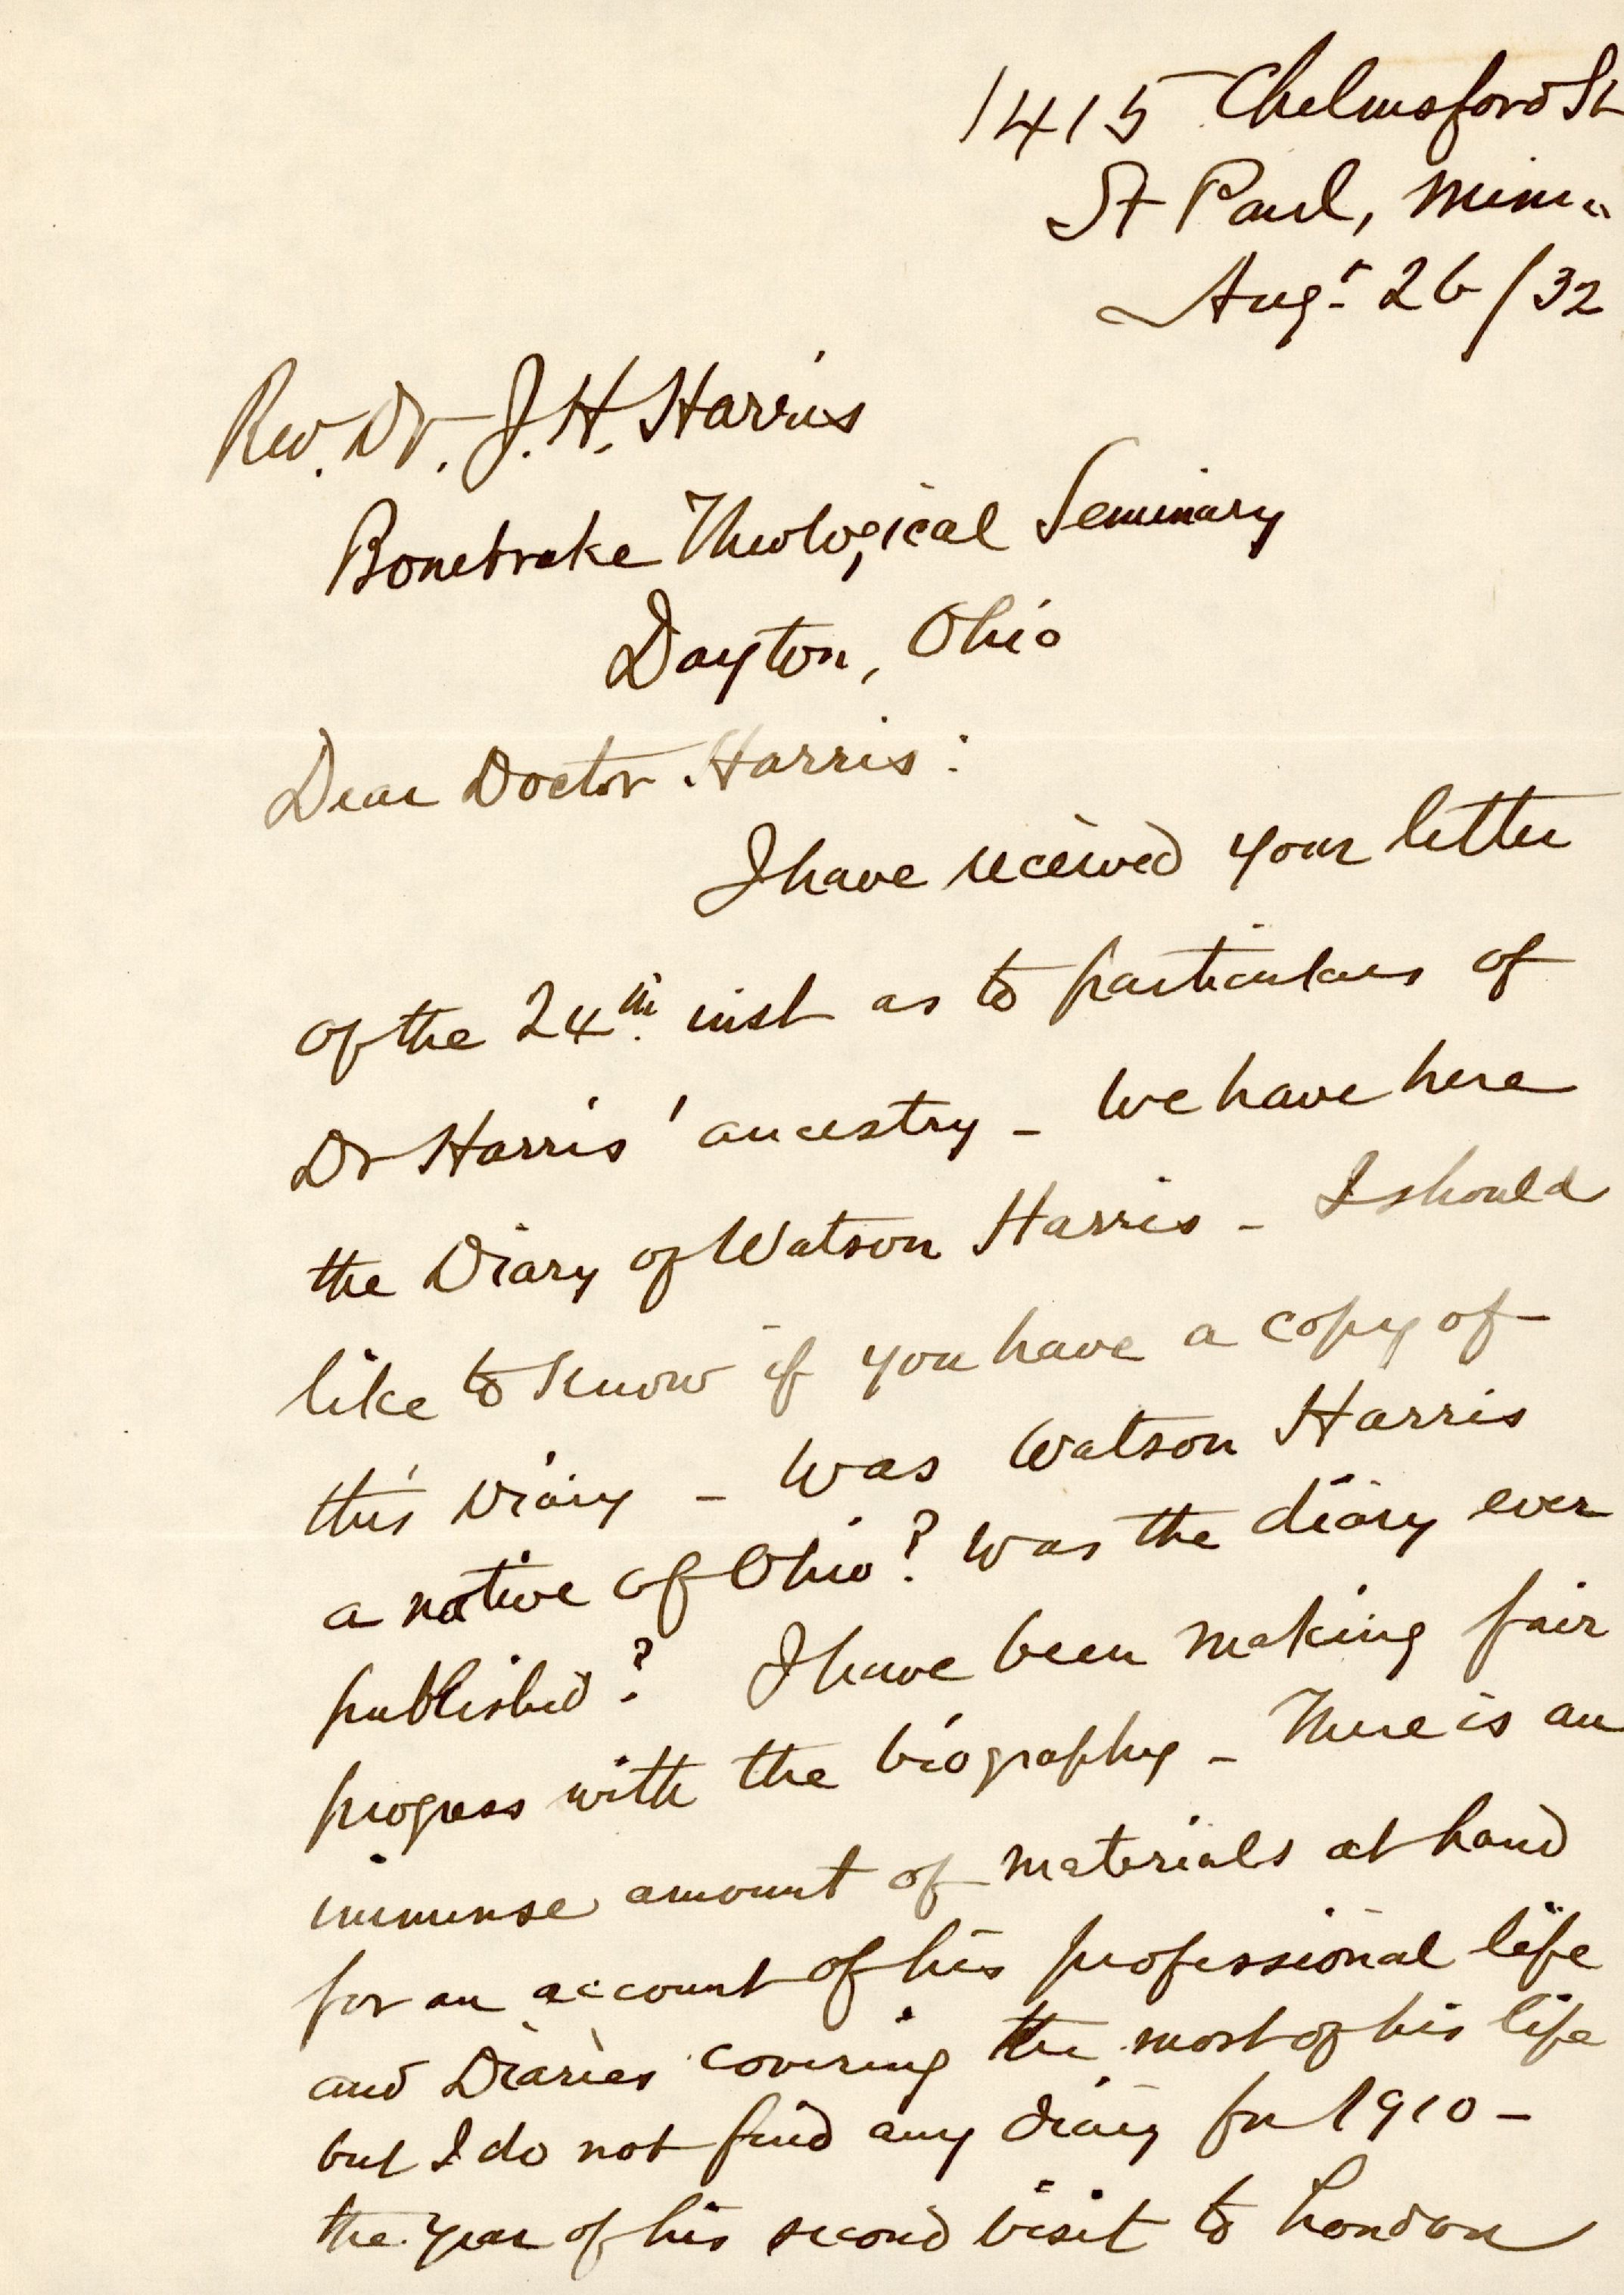 1415 Chelmsford St
St Paul, Minn.
Aug. 26/32
Rev. Dr. J. H. Harris
Bonebrake Theological Seminary
Dayton, Ohio
Dear Doctor Harris:
I have received your letter
of the 24th. inst as to particulars of
Dr Harris' ancestry - We have here
the Diary of Watson Harris - I should
like to know if you have a copy of
this Diary - Was Watson Harris
a native of Ohio? Was the diary ever
published? I have been making fair
progress with the biography - There is an
immense amount of materials at hand
for an account of his professional life
and Diaries covering the most of his life
but I do not find any diary for 1910 -
the year of his second visit to London